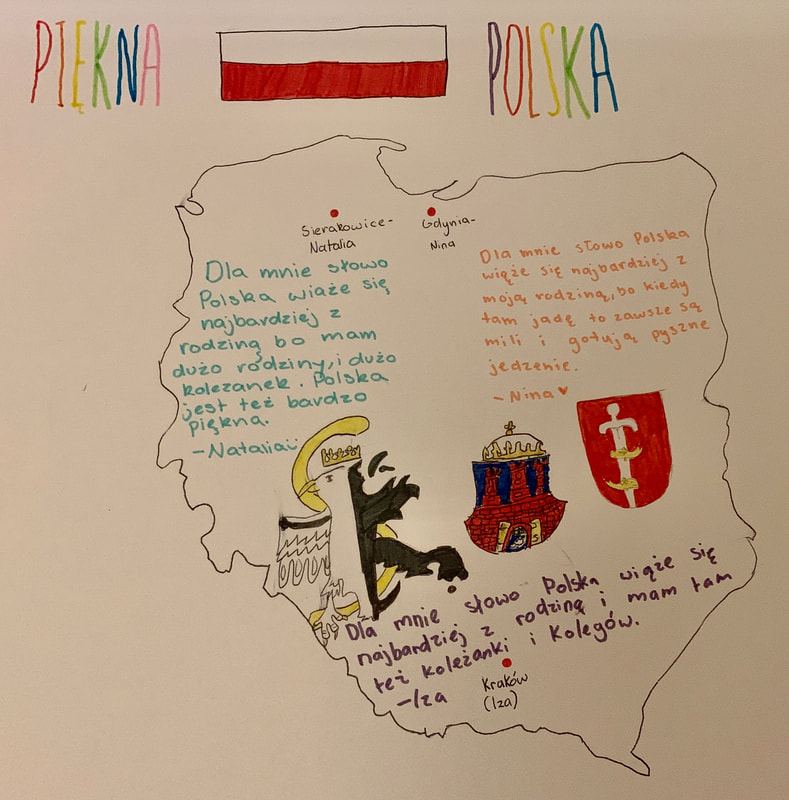 PIĘKNA POLSKA
Sierakowice-
Natalia
Gdynia-
Nina
Dla mnie słowo
Polska wiąże się
najbardziej z
rodziną bo mam
dużo rodziny, i dużo
koleżanek. Polska
jest też bardzo
piękna.
-Natalia
Dla mnie słowo Polska
wiąże się najbardziej z
moją rodziną, bo kiedy
tam jadę to zawsze są
mili i gotują pyszne
jedzenie.
- Nina
Dla mnie słowo Polska wiąże się
najbardziej z rodziną i mam tam
też koleżanki i kolegów.
-Iza
Kraków
(Iza)